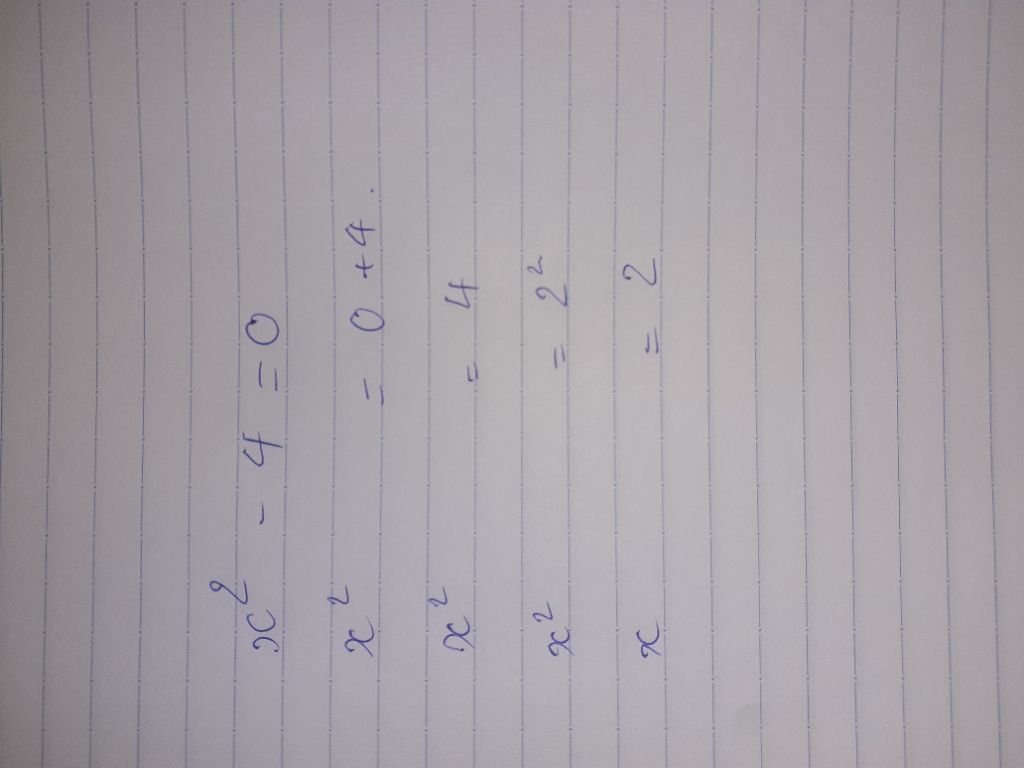 x² - 4 = 0
x² = 0 + 4.
x² = 4
x² = 2²
x = 2